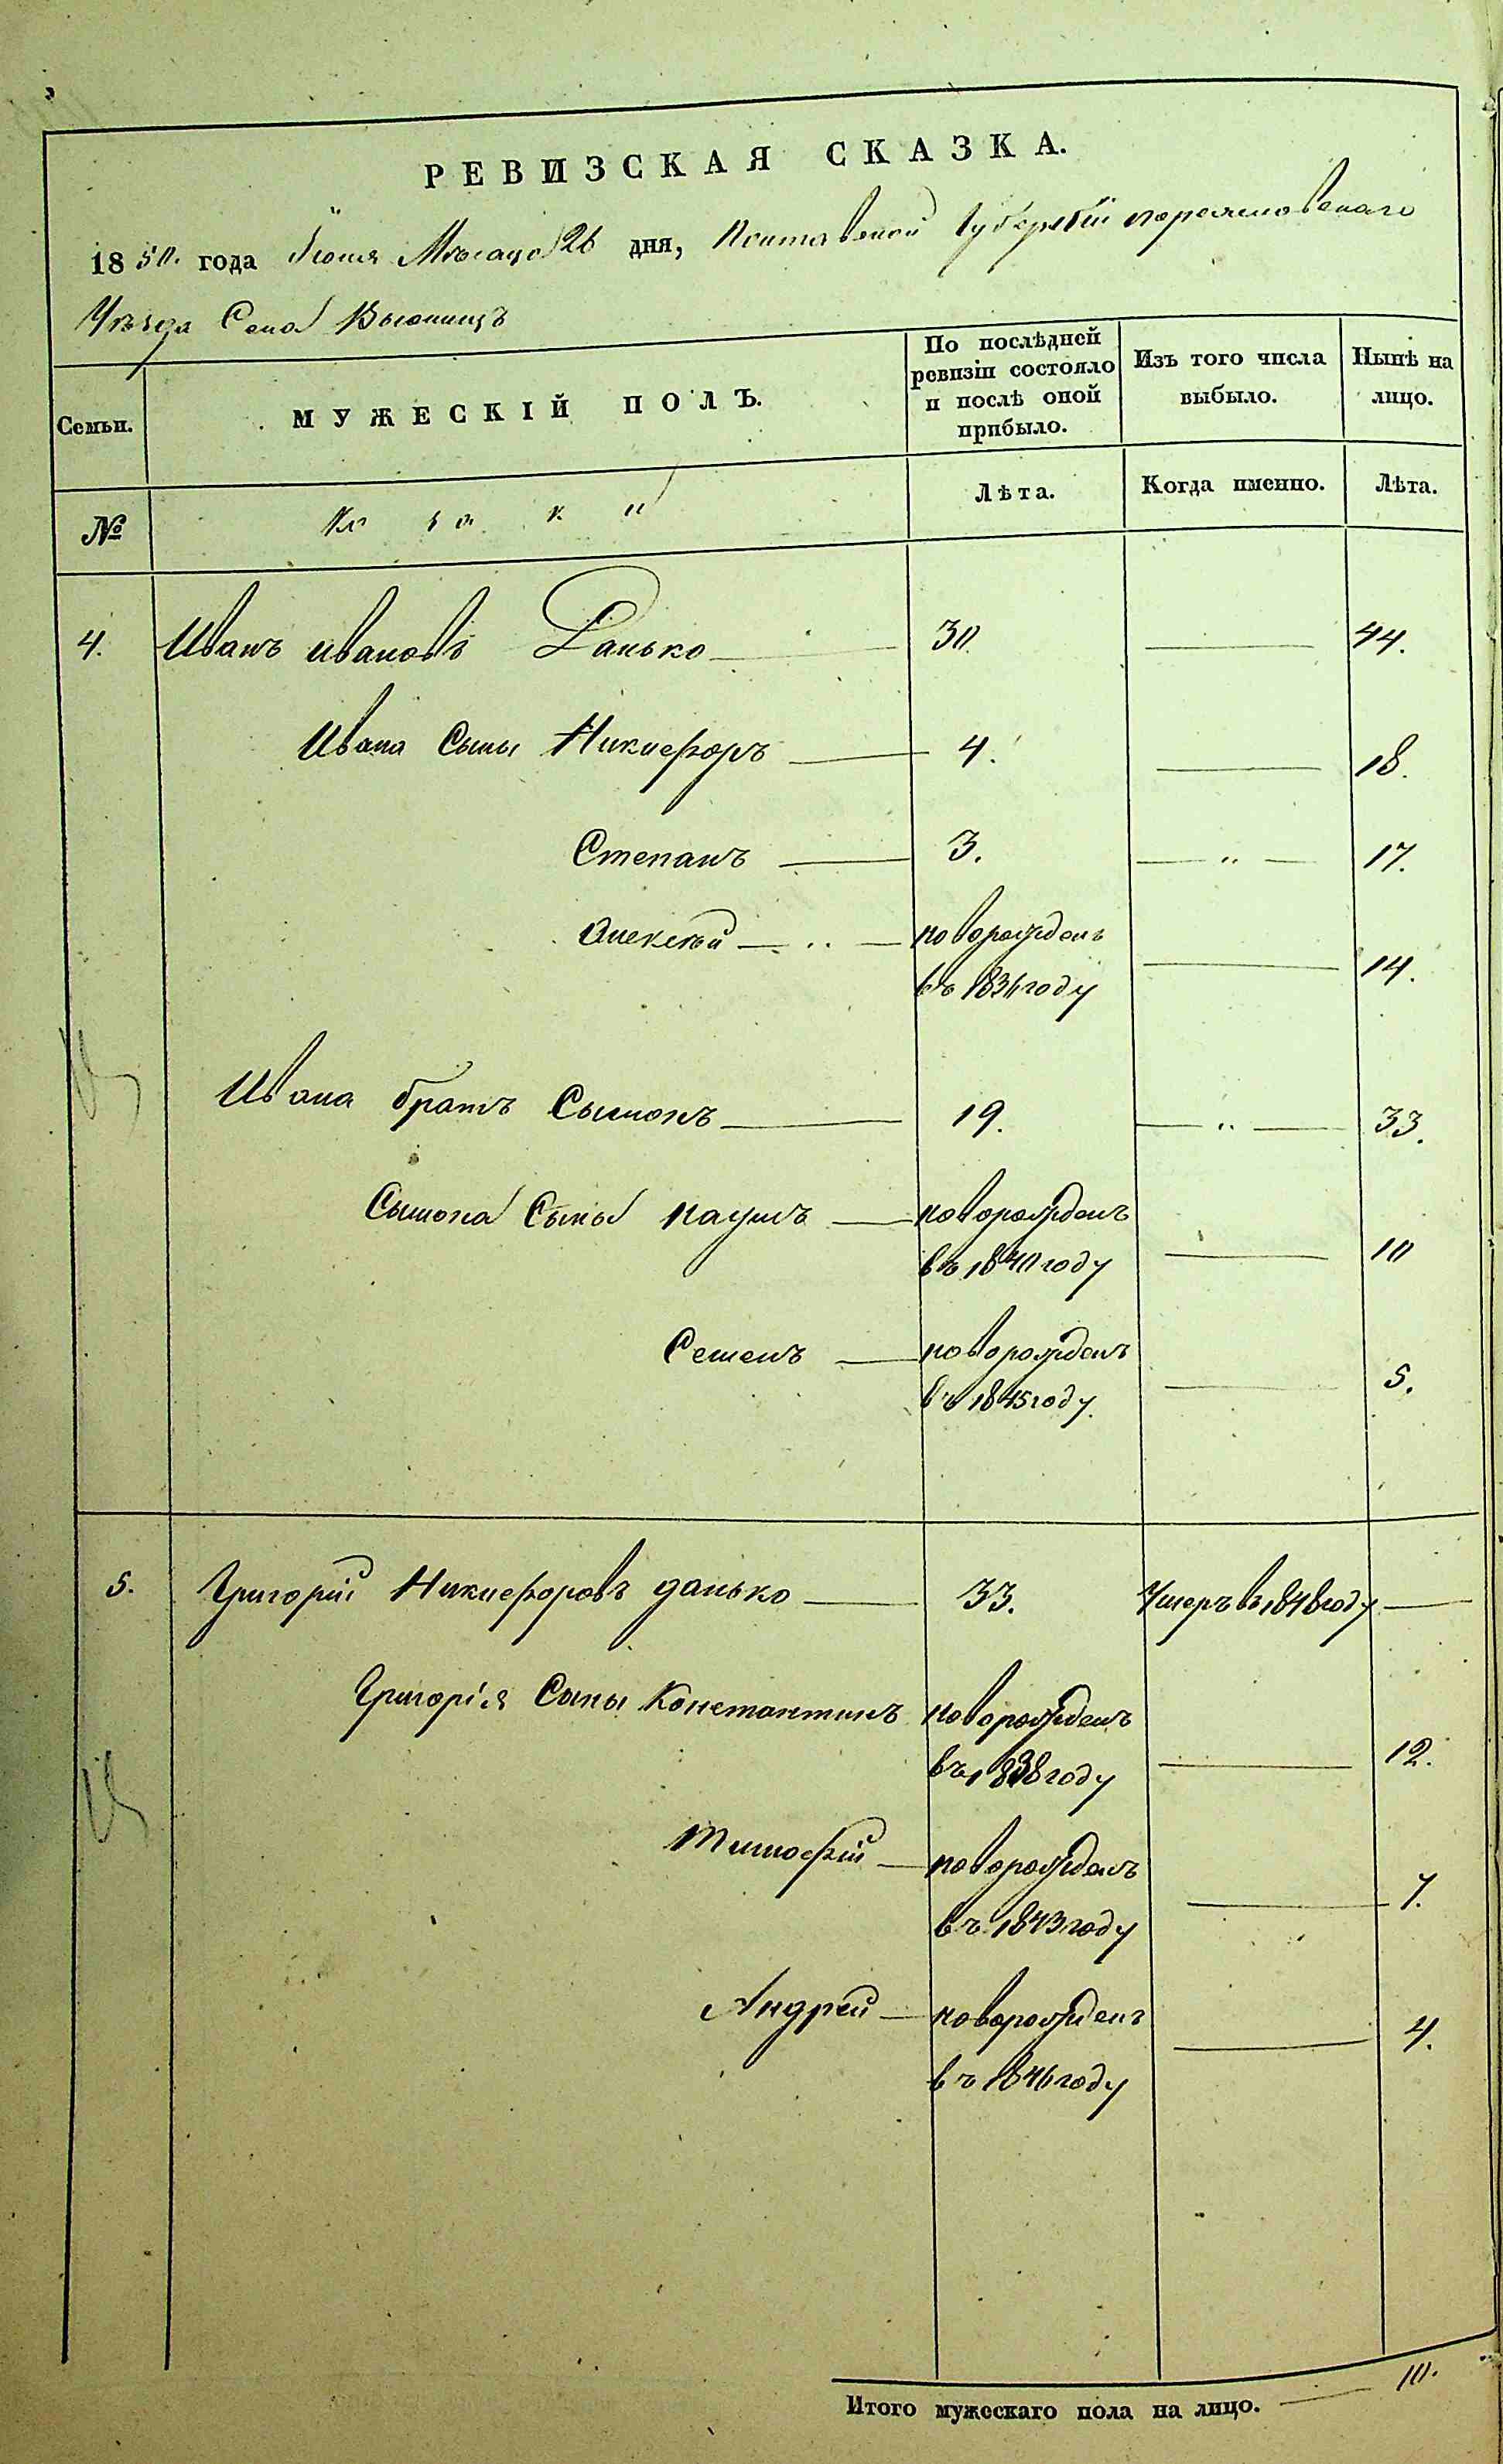 РЕВИЗСКАЯ СКАЗКА.
1850. года Іюня Мѣсяца 26 дня, Полтавской Губерніи переяславскаго
Уѣзда Села Вьюнищъ
Семьи.
МУЖЕСКІЙ ПОЛЪ.
По послѣдней ревизіи состояло и послѣ оной прибыло.
Изъ того числа выбыло.
Нынѣ на лицо.
№
Козаки
Лѣта.
Когда именно.
Лѣта.
4. Иванъ ивановъ Данько 30. 44.
Ивана Сыны Никифоръ 4. 18.
Степанъ 3. „ 17.
Алексѣй новорожденъ
въ 1836 году 14.
Ивана братъ Сымонъ 19. „ 33.
Сымона Сыны наумъ новорожденъ
въ 1840 году 10
Семенъ новорожденъ
въ 1845 году. 5.
5. Григорій Никифоровъ данько 33. Умеръ въ 1848 году
Григорія Сыны Константинъ новорожденъ
въ 1838 году 12.
Тимофій новорожденъ
въ 1843 году 7.
Андрей новорожденъ
въ 1846 году 4.
Итого мужескаго пола на лицо. 10.